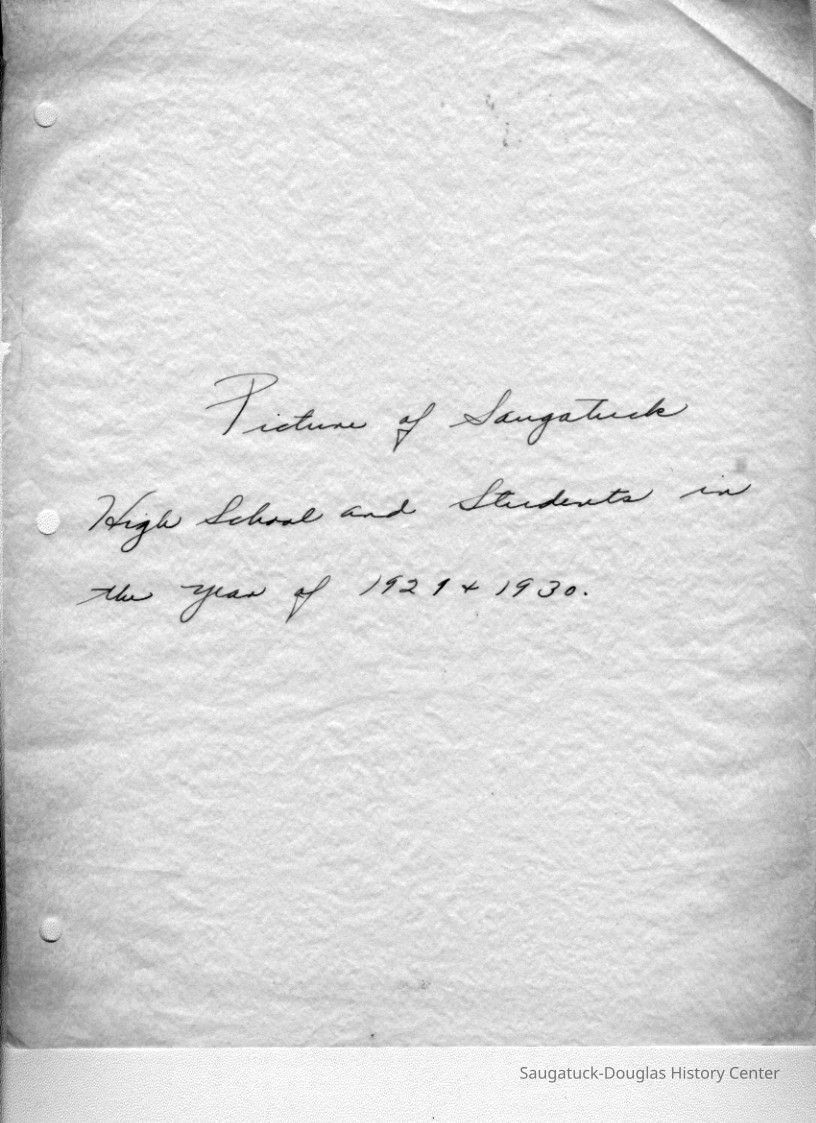 Picture of Saugatuck
High School and Students in
the year of 1929 & 1930.
Saugatuck-Douglas History Center